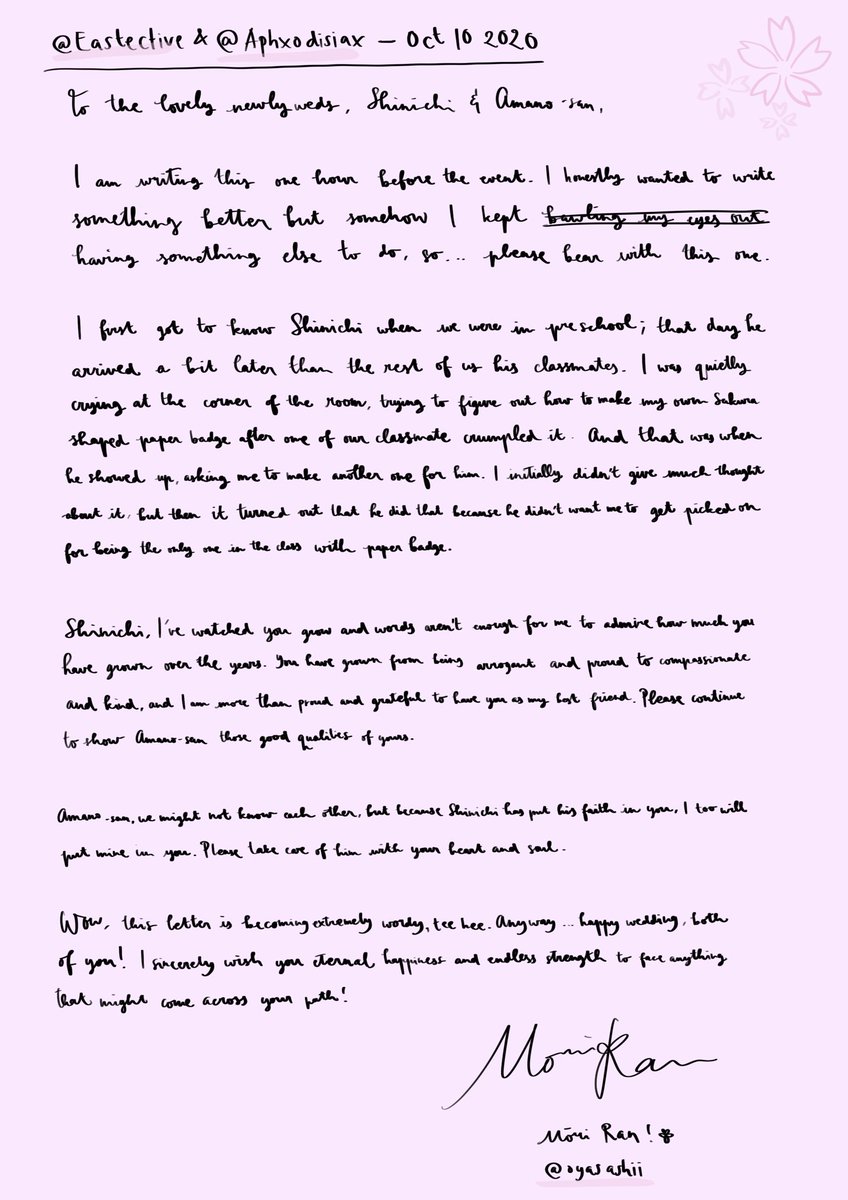 @Eastective & @Aphxodisiax — Oct 10 2020
To the lovely newlyweds, Shinichi & Amano-san,
I am writing this one hour before the event. I honestly wanted to write
something better but somehow I kept bawling my eyes out
having something else to do, so... please bear with this one.
I first got to know Shinichi when we were in preschool; that day he
arrived a bit later than the rest of us his classmates. I was quietly
crying at the corner of the room, trying to figure out how to make my own Sakura
shaped paper badge after one of our classmate crumpled it. And that was when
he showed up, asking me to make another one for him. I initially didn't give much thought
about it, but then it turned out that he did that because he didn't want me to get picked on
for being the only one in the class with paper badge.
Shinichi, I've watched you grow and words aren't enough for me to admire how much you
have grown over the years. You have grown from being arrogant and proud to compassionate
and kind, and I am more than proud and grateful to have you as my best friend. Please continue
to show Amano-san those good qualities of yours.
Amano-san, we might not know each other, but because Shinichi has put his faith in you, I too will
put mine in you. Please take care of him with your heart and soul.
Wow, this letter is becoming extremely wordy, tee hee. Anyway... happy wedding, both
of you! I sincerely wish you eternal happiness and endless strength to face anything
that might come across your path!
Mori Ran
Mōri Ran!
@oyasashii